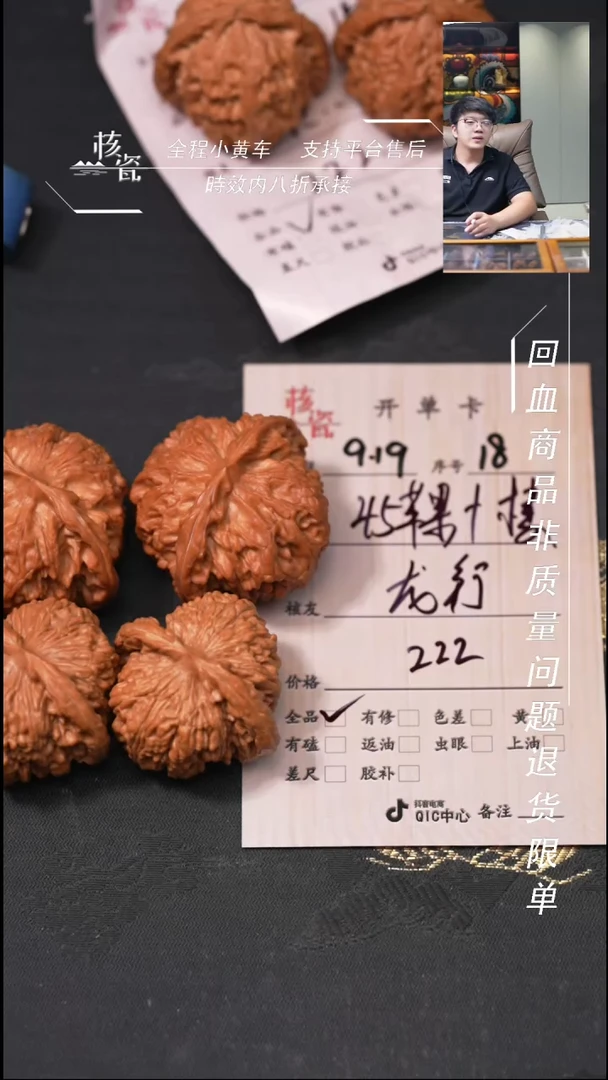 核瓷
全程小黄车 支持平台售后
時效内八折承接
差尺
回血商品非质量问题退货限单
核瓷
开单卡
9.19 序号 18
45苹果+核
核友 龙行
价格 222
全品 ✓ 有修 色差 黄
有磕 返油 虫眼 上油
差尺 胶补
抖音电商
QIC中心 备注